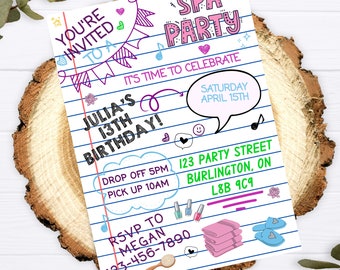 YOU'RE
INVITED
TO A
SPA
PARTY
IT'S TIME TO CELEBRATE
JULIA'S
13TH
BIRTHDAY!
SATURDAY
APRIL 15TH
DROP OFF 5PM
PICK UP 10AM
123 PARTY STREET
BURLINGTON, ON
L8B 9C9
RSVP TO
MEGAN
123-456-7890